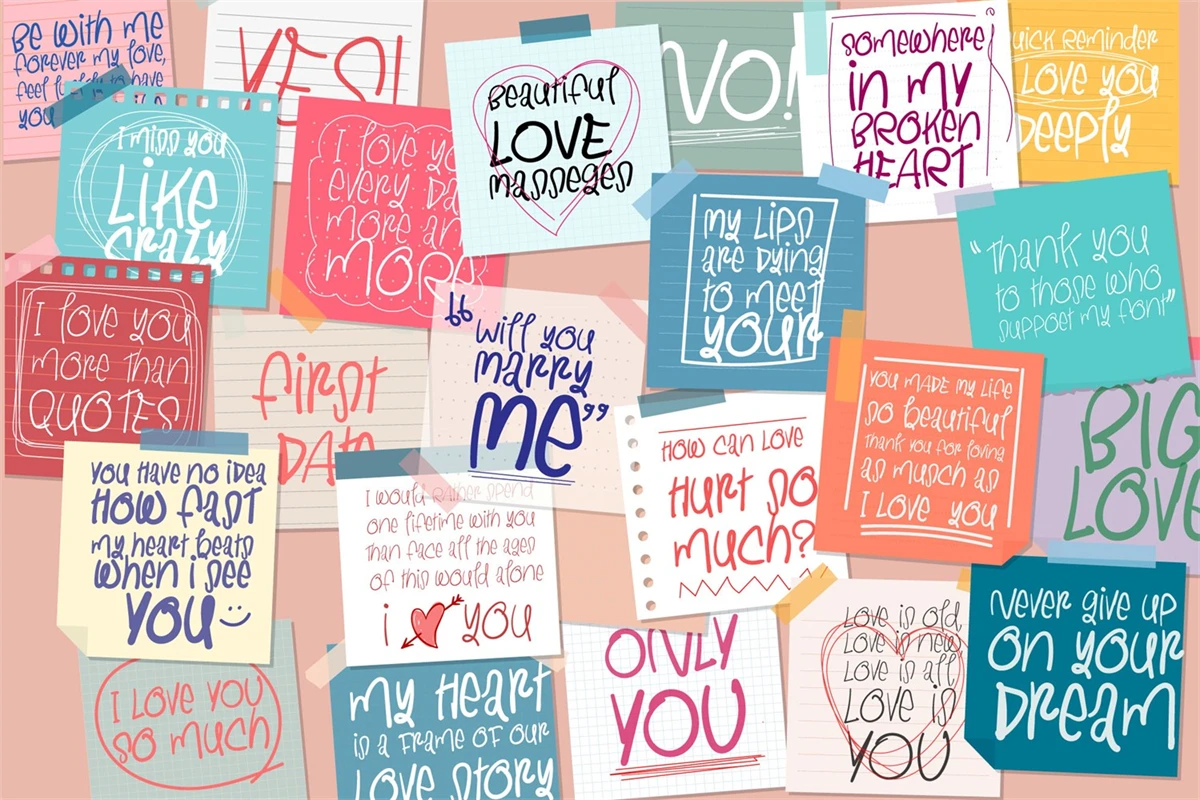 Be with me
forever my love,
to have
you
YES!
Beautiful
LOVE
masseges
NO!
somewhere
in my
BROKEN
HEART
uick reminder
Love you
Deeply
I miss you
Like
crazy
I love yo
every da
more an
more
my Lips
are dying
to meet
your
"Thank you
to those who
suppoet my font"
I love you
more than
QUOTES
first
DATE
"will you
marry
me"
How can love
Hurt so
much?
you made my life
so beautiful
thank you for loving
as musch as
I love you
BIG
LOVE
you have no idea
How fast
my heart beats
when i see
you
I would rather spend
one lifetime with you
than face all the ages
of this would alone
i you
I love you
so much
my Heart
is a frame of our
Love story
ONLY
YOU
Love is old,
Love is new
Love is all,
Love is
YOU
Never give up
on your
Dream